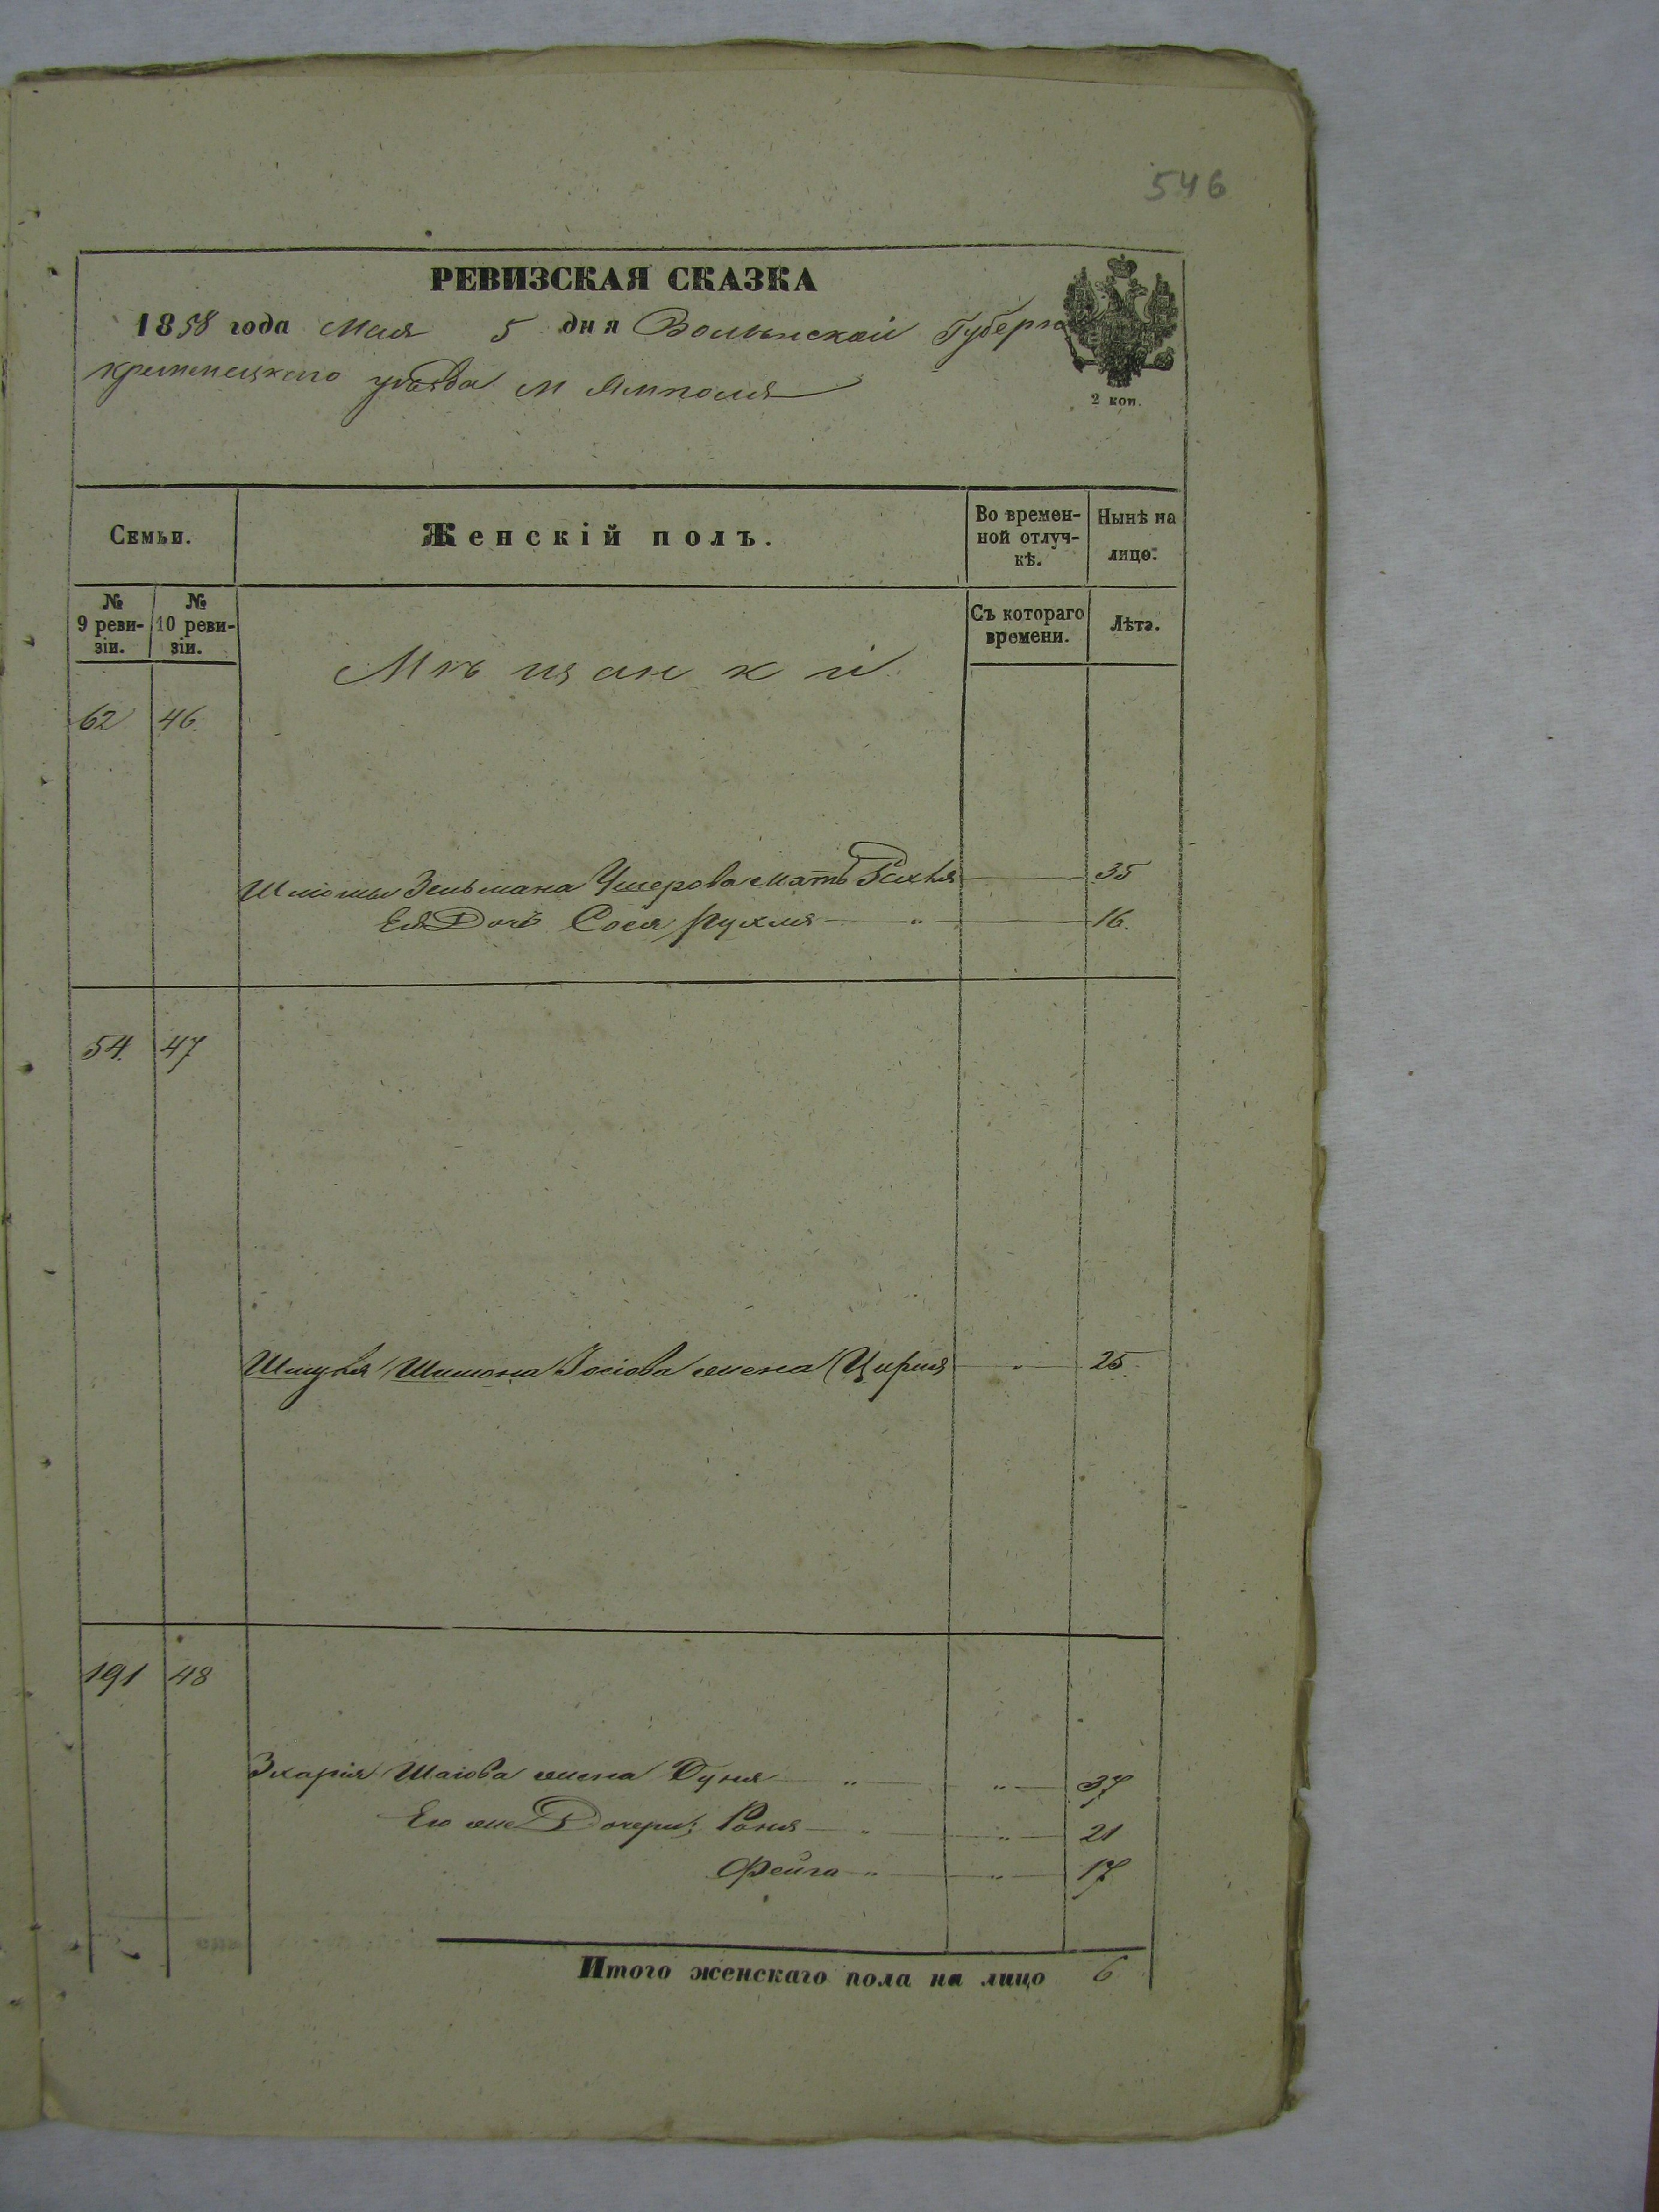 546
РЕВИЗСКАЯ СКАЗКА
1858 года Мая 5 дня Волынской Губерн
кременецкаго уѣзда м Ямполя
2 коп.
Семьи.
Женскій полъ.
Во времен-
ной отлуч-
кѣ.
Нынѣ на
лицо.
№
9 реви-
зіи.
№
10 реви-
зіи.
Съ котораго
времени.
Лѣта.
Мѣщанкі
62 46
Зельмана мать 35
Ея Дочь Сося Рухля 16.
54. 47
Шимона Іосіова жена Цирля 25.
191 48
Зхарія Шаіова жена Дуня 37
Его же Дочери: Роня 21
Фейга 17
Итого женскаго пола на лицо 6